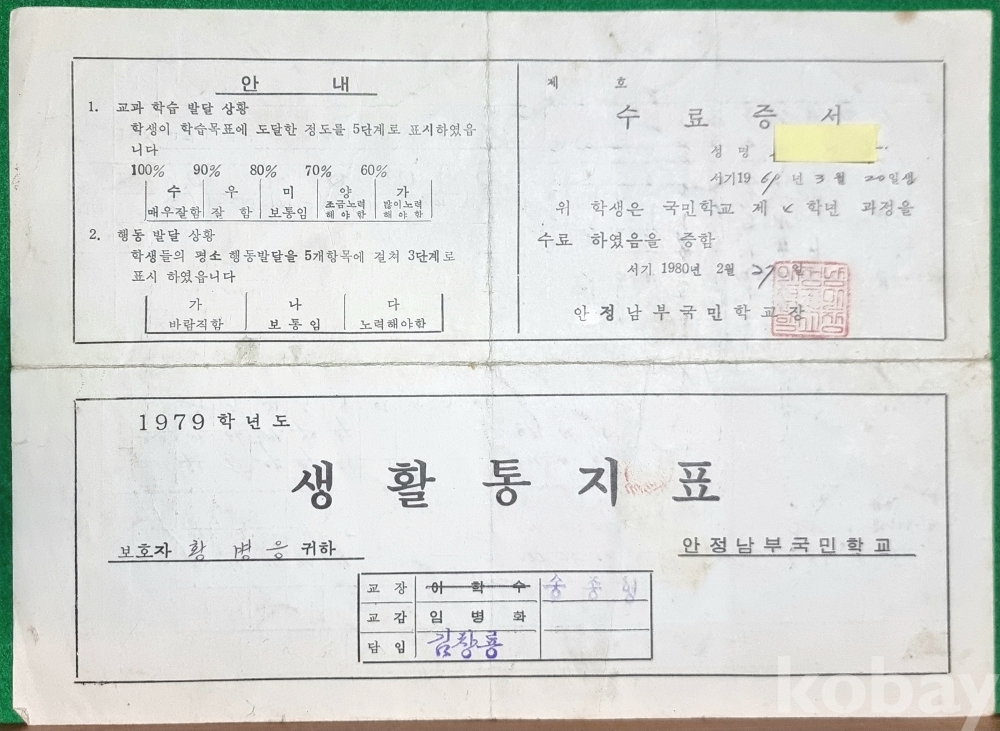 안 내
1. 교과 학습 발달 상황
학생이 학습목표에 도달한 정도를 5단계로 표시하였읍
니다
100% 90% 80% 70% 60%
수 우 미 양 가
매우잘함 잘 함 보통임 조금노력 해야 함 많이노력 해야 함
2. 행동 발달 상황
학생들의 평소 행동발달을 5개항목에 걸쳐 3단계로
표시 하였읍니다
가 나 다
바람직함 보 통 임 노력해야함
제 호
수 료 증 서
성 명
서기19 년 3 월 20일생
위 학생은 국민학교 제 학년 과정을
수료 하였음을 증함
서기 1980년 2월 27 일
안정남부국민학교장
1979 학년도
생 활 통 지 표
보호자 황 병 응 귀하
안정남부국민학교
교 장 이 학 수 송 종 형
교 감 임 병 화
담 임 김창룡
kobay